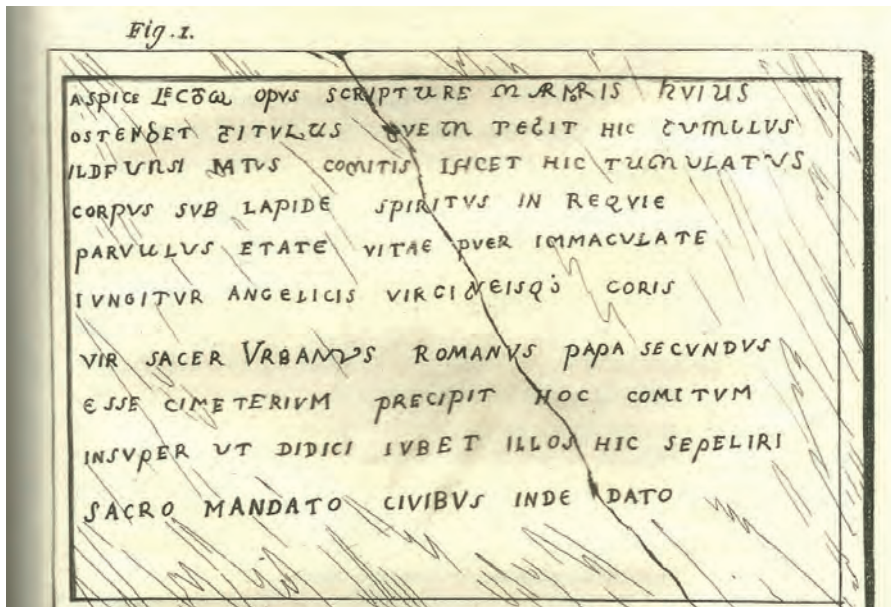 Fig. 1.
ASPICE LECTOR OPVS SCRIPTURE MARMORIS HVIUS
OSTENDET TITULUS QVEM TEGIT HIC TUMULVS
ILDFUNSI NATVS COMITIS IACET HIC TUMULATVS
CORPVS SVB LAPIDE SPIRITVS IN REQVIE
PARVULUS ETATE VITAE PVER IMMACVLATE
IVNGITVR ANGELICIS VIRGINEISQ; CORIS
VIR SACER VRBANVS ROMANVS PAPA SECVNDVS
ESSE CIMETERIVM PRECIPIT HOC COMITVM
INSVPER UT DIDICI IVBET ILLOS HIC SEPELIRI
SACRO MANDATO CIVIBVS INDE DATO